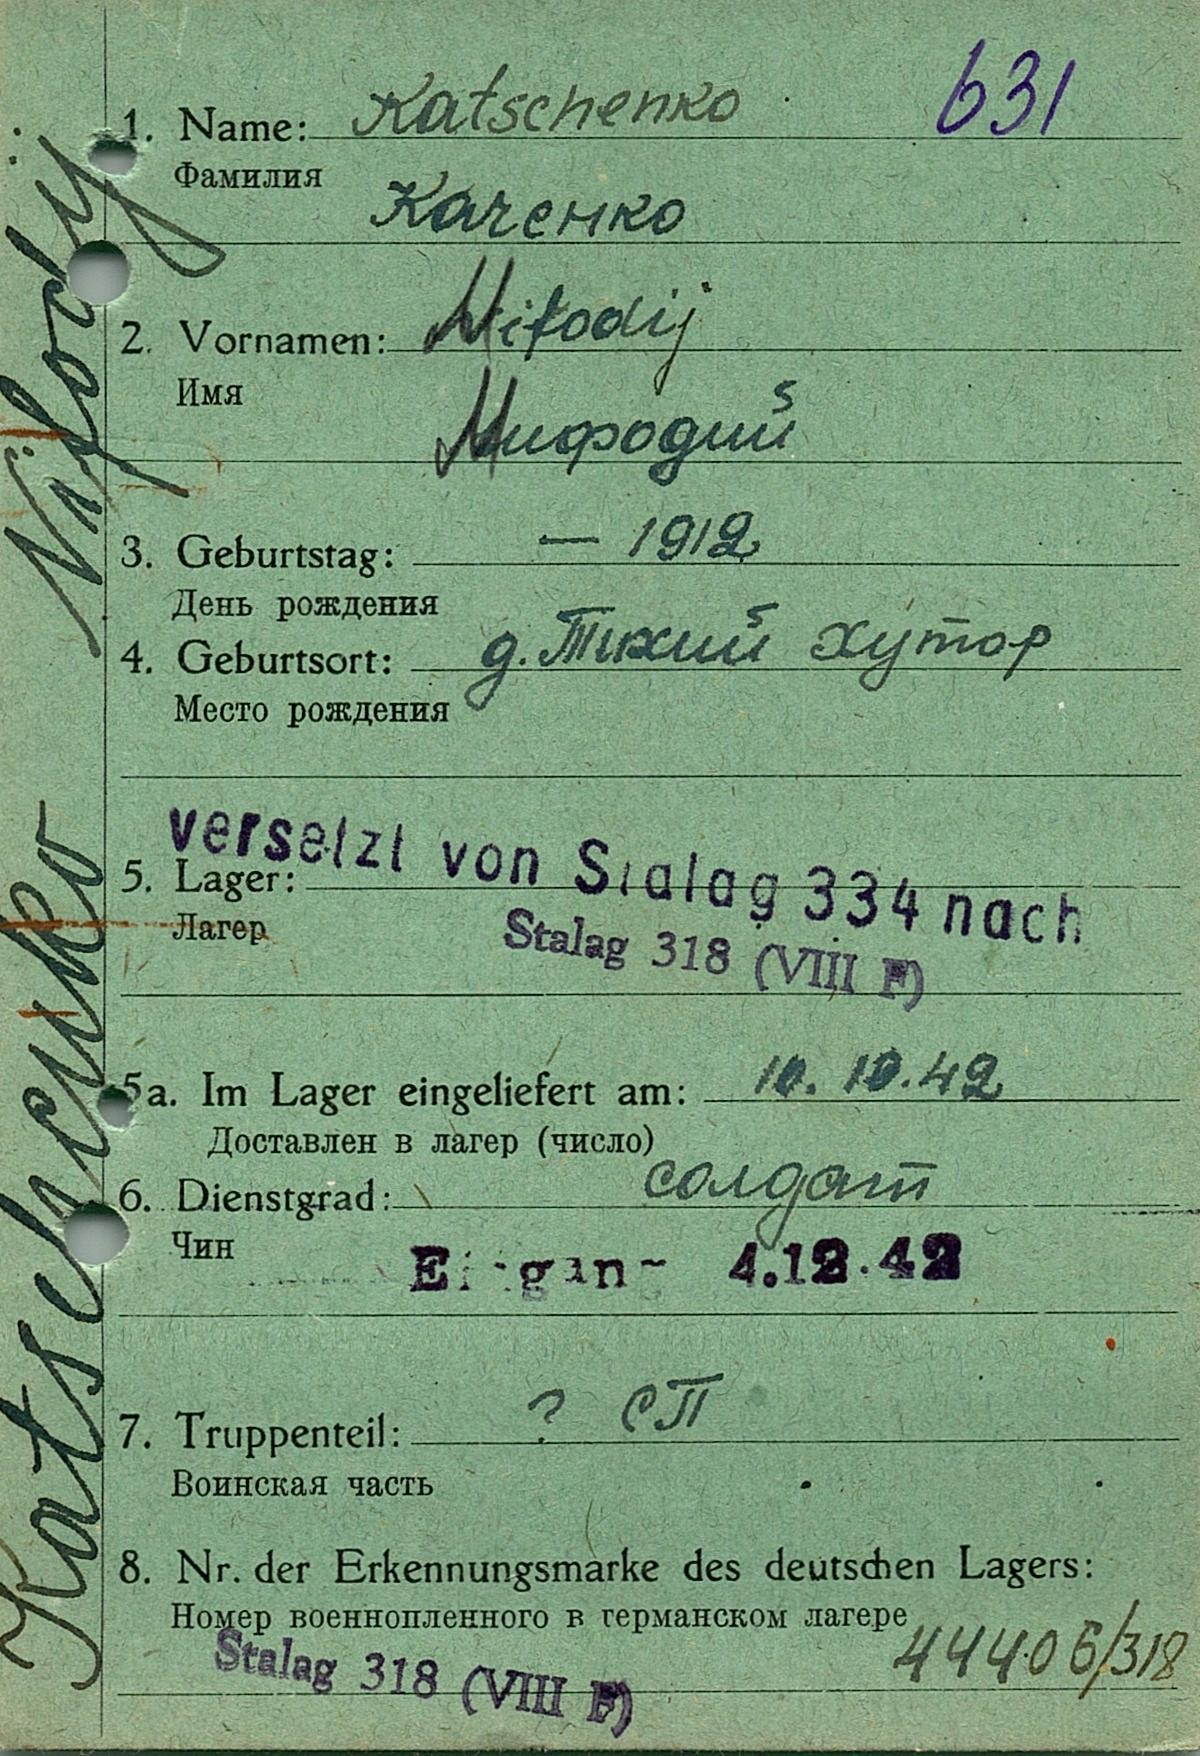 631
1. Name: Katschenko
Фамилия
Каченко
2. Vornamen: Mifodij
Имя
Мифодий
3. Geburtstag: — 1912
День рождения
4. Geburtsort: д. Тихий хутор
Место рождения
versetzt von Stalag 334 nach
5. Lager:
Лагер
Stalag 318 (VIII F)
5a. Im Lager eingeliefert am: 10. 10. 42
Доставлен в лагер (число)
6. Dienstgrad: солдат
Чин
Eingang 4.12.42
7. Truppenteil: ? СП
Воинская часть
8. Nr. der Erkennungsmarke des deutschen Lagers:
Номер военнопленного в германском лагере
44406/318
Stalag 318 (VIII F)
Katschenko Nifodij